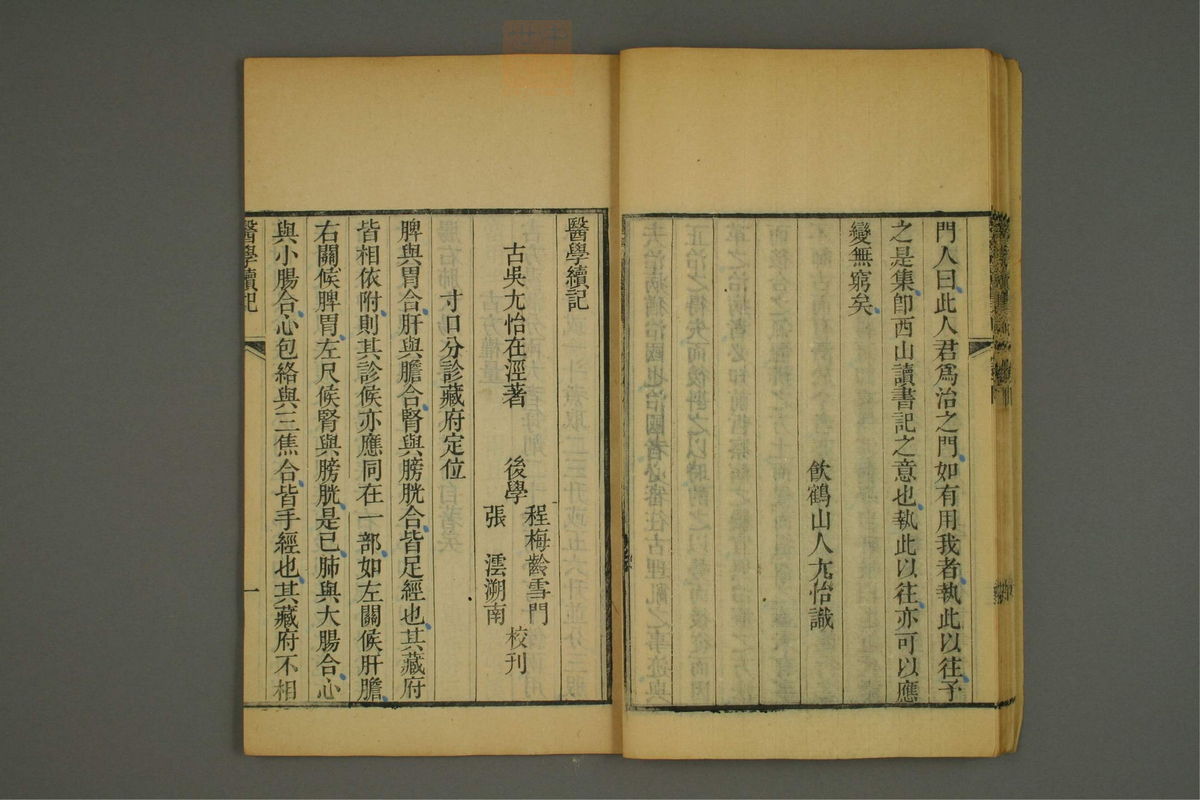 門人曰此人君爲治之門如有用我者執此以往予
之是集卽西山讀書記之意也執此以往亦可以應
變無窮矣
飮鶴山人尤怡識
醫學續記
古吳尤怡在涇著
後學
程梅齡雪門
張 澐溯南
校刊
寸口分診藏府定位
脾與胃合肝與膽合腎與膀胱合皆足經也其藏府
皆相依附則其診候亦應同在一部如左關候肝膽
右關候脾胃左尺候腎與膀胱是已肺與大腸合心
與小腸合心包絡與三焦合皆手經也其藏府不相
醫學續記
一